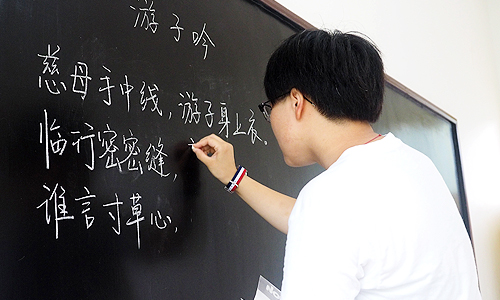 游子吟
慈母手中线,游子身上衣。
临行密密缝,
谁言寸草心,